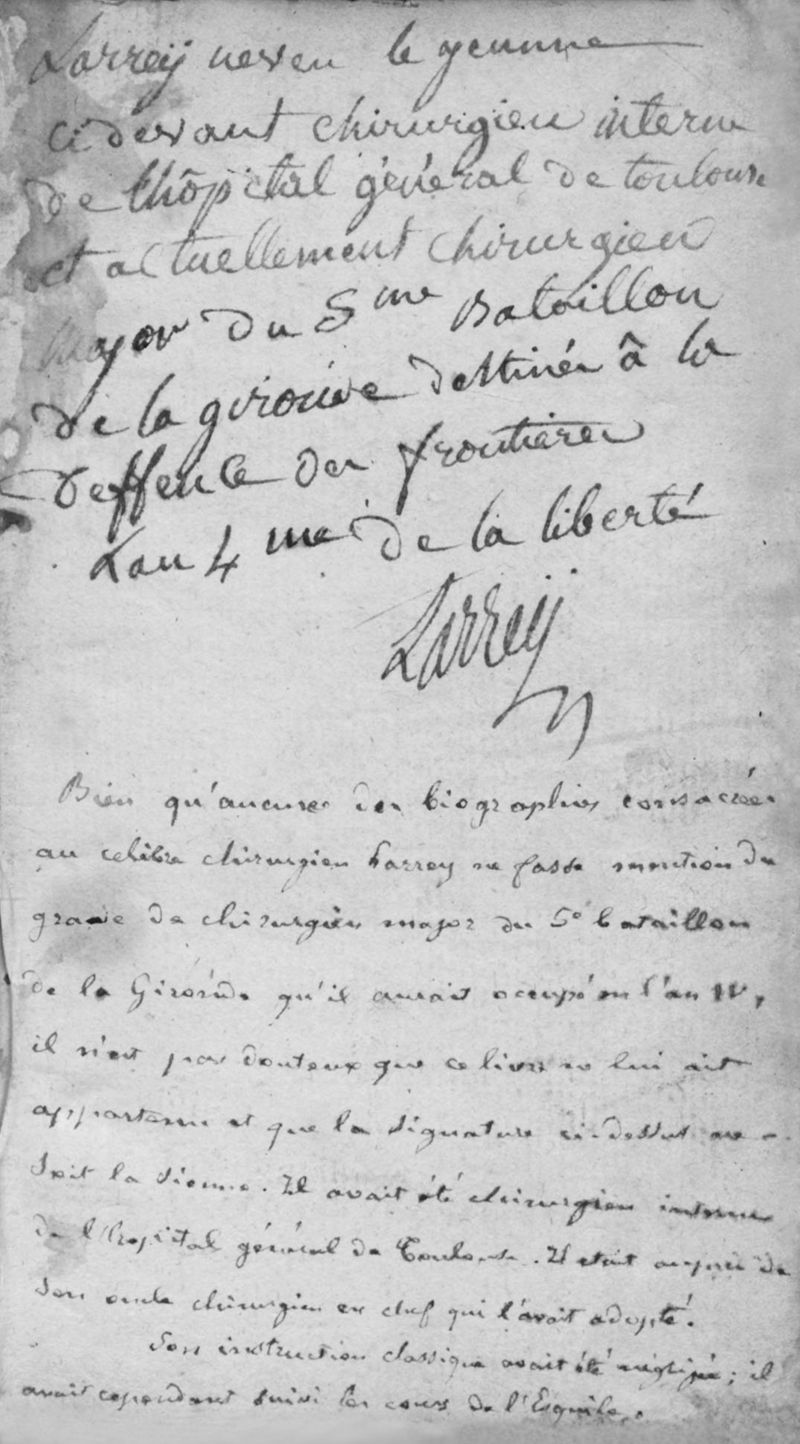 Larrey neveu le jeunne
ci devant chirurgien interne
de lhôpital général de toulouse
et actuellement chirurgien
major du 5me Bataillon
de la gironde destinée à la
deffence des frontieres
Lan 4me de la liberté
Larrey
Bien qu'aucunes des biographies consacrées
au celèbre chirurgien Larrey ne fasse mention du
grade de chirurgien major du 5e bataillon
de la Gironde qu'il aurait occupé en l'an IV,
il n'est pas douteux que ce livre ne lui ait
appartenu et que la signature ci-dessus ne
soit la sienne. Il avait été chirurgien interne
de l'hopital général de Toulouse. Il etait auprès de
son oncle chirurgien en chef qui l'avait adopté.
Son instruction classique avait été négligée ; il
avait cependant suivi les cours de l'Esquile.